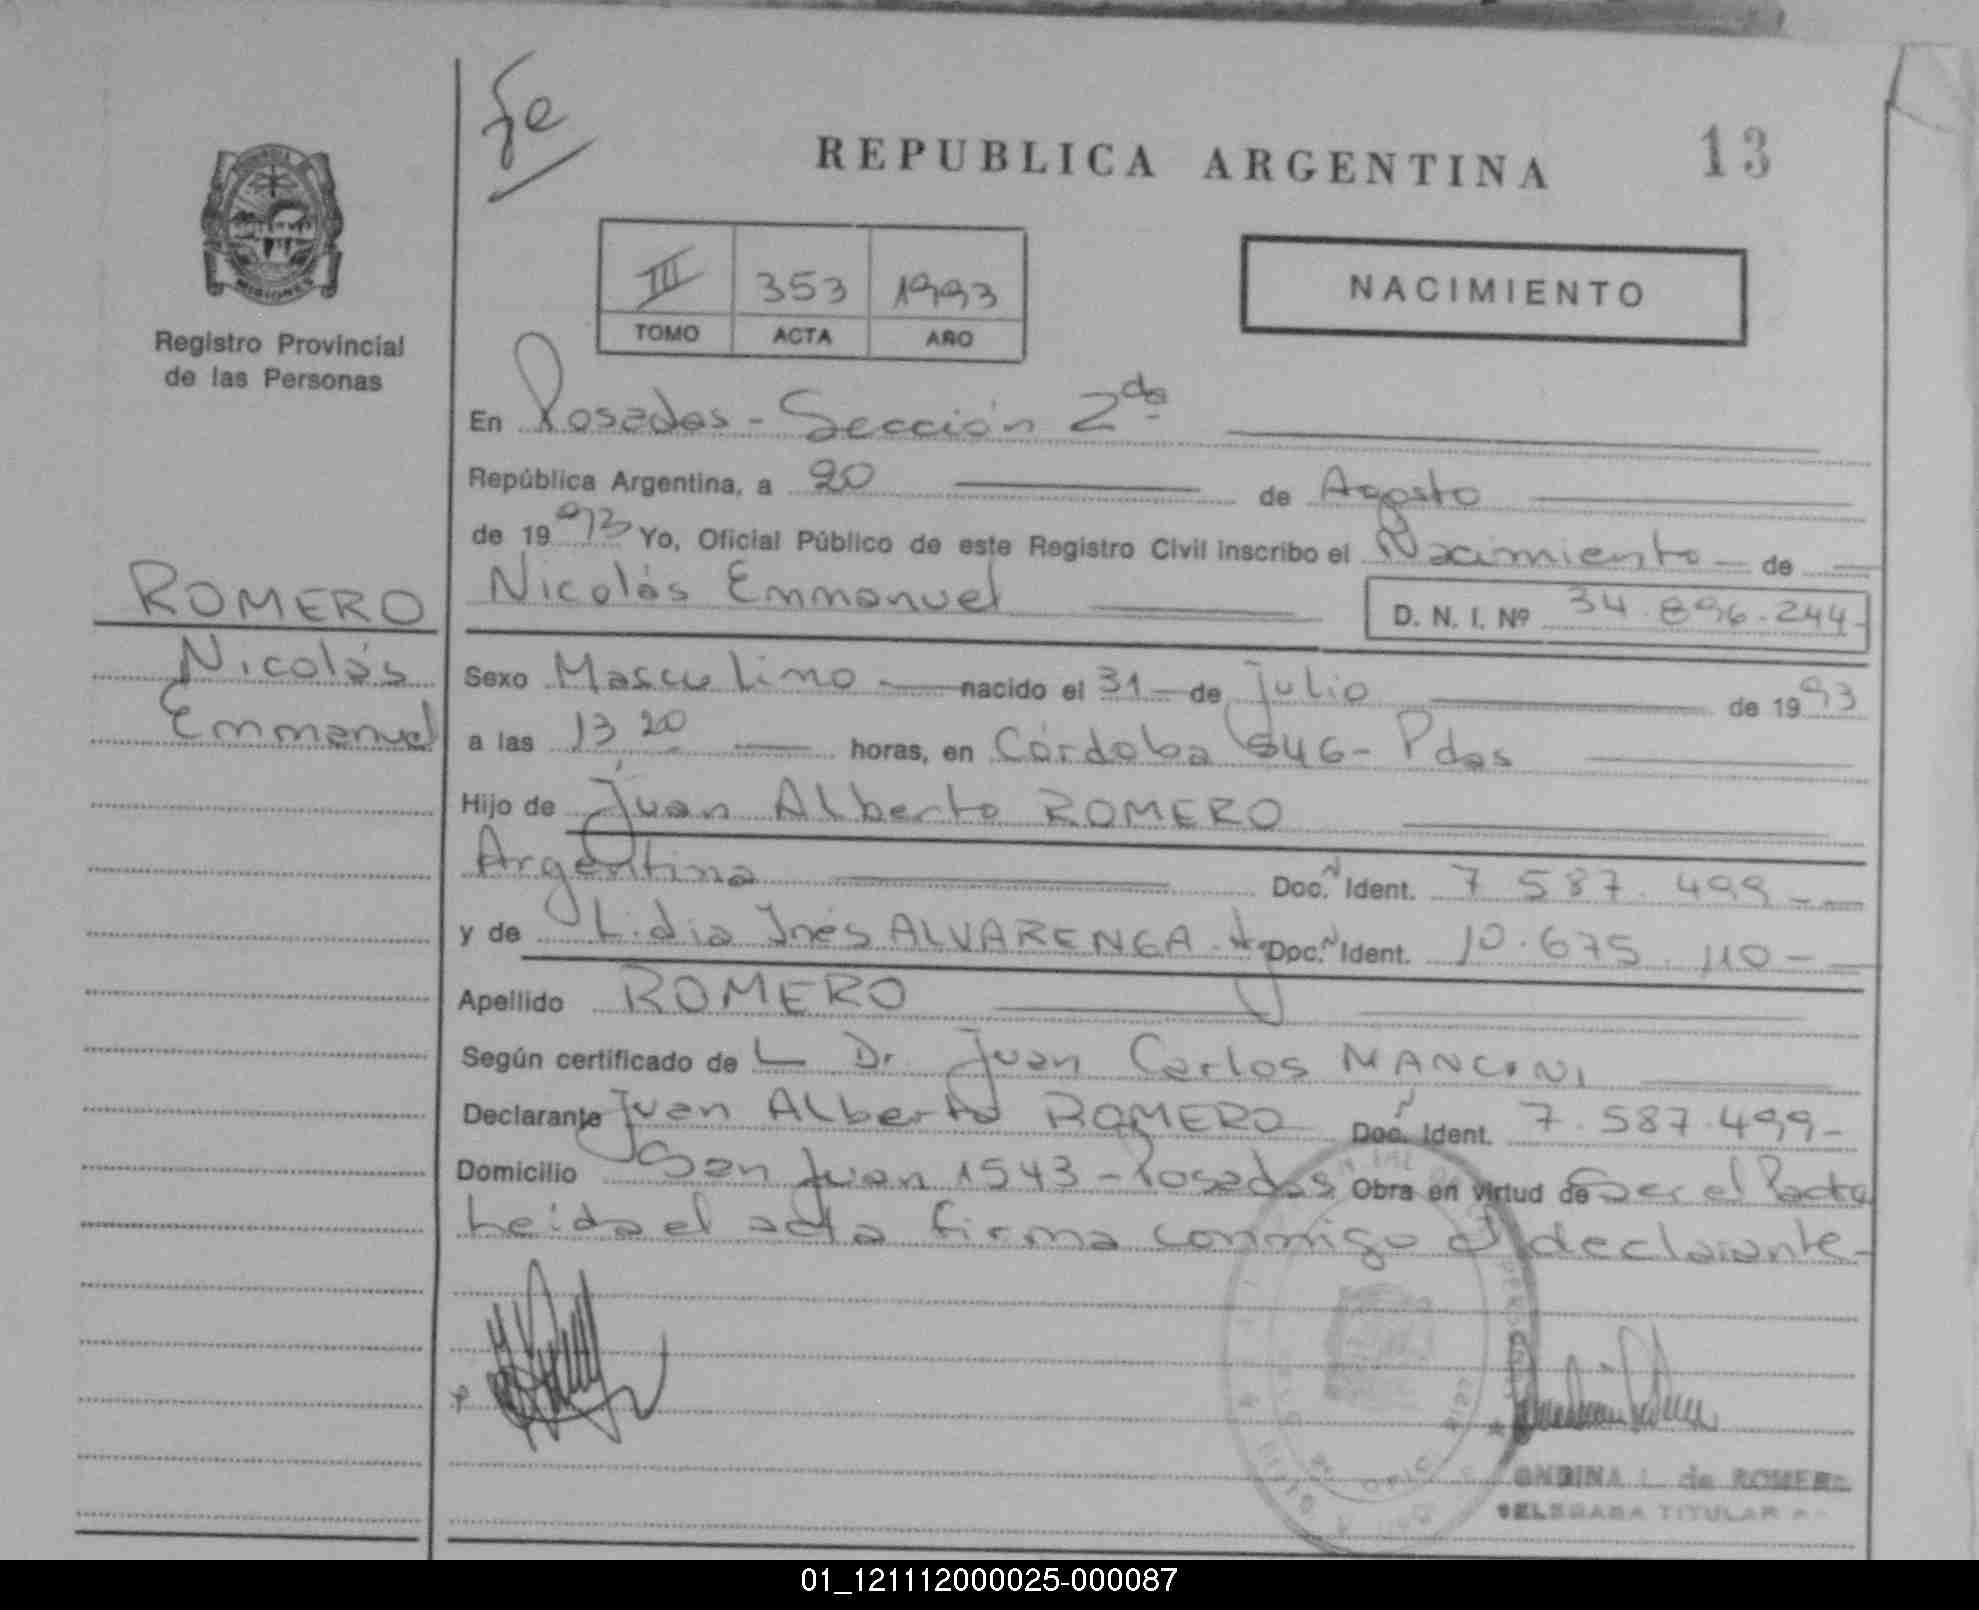 fe
REPUBLICA ARGENTINA
13
MISIONES
Registro Provincial
de las Personas
III 353 1993
TOMO ACTA AÑO
NACIMIENTO
En Posadas - Sección 2da
República Argentina, a 20 de Agosto
de 1993 Yo, Oficial Público de este Registro Civil inscribo el Nacimiento de
Nicolás Emmanuel D. N. I. Nº 34.896.244-
ROMERO
Nicolás
Emmanuel
Sexo Masculino nacido el 31 de julio de 1993
a las 13 20 horas, en Córdoba 846 - Pdas
Hijo de Juan Alberto ROMERO
Argentina Doc. N Ident. 7 587.499-
y de Lidia Inés ALVARENGA. Arg Doc. N Ident. 10.675.110-
Apellido ROMERO
Según certificado de L Dr Juan Carlos MANCINI
Declarante Juan Alberto ROMERO Doc. N Ident. 7.587.499-
Domicilio San Juan 1543 - Posadas Obra en virtud de Ser el Padre
Leida el acta firma conmigo el declarante-
ONDINA L. de ROMERO
DELEGADA TITULAR
01_121112000025-000087